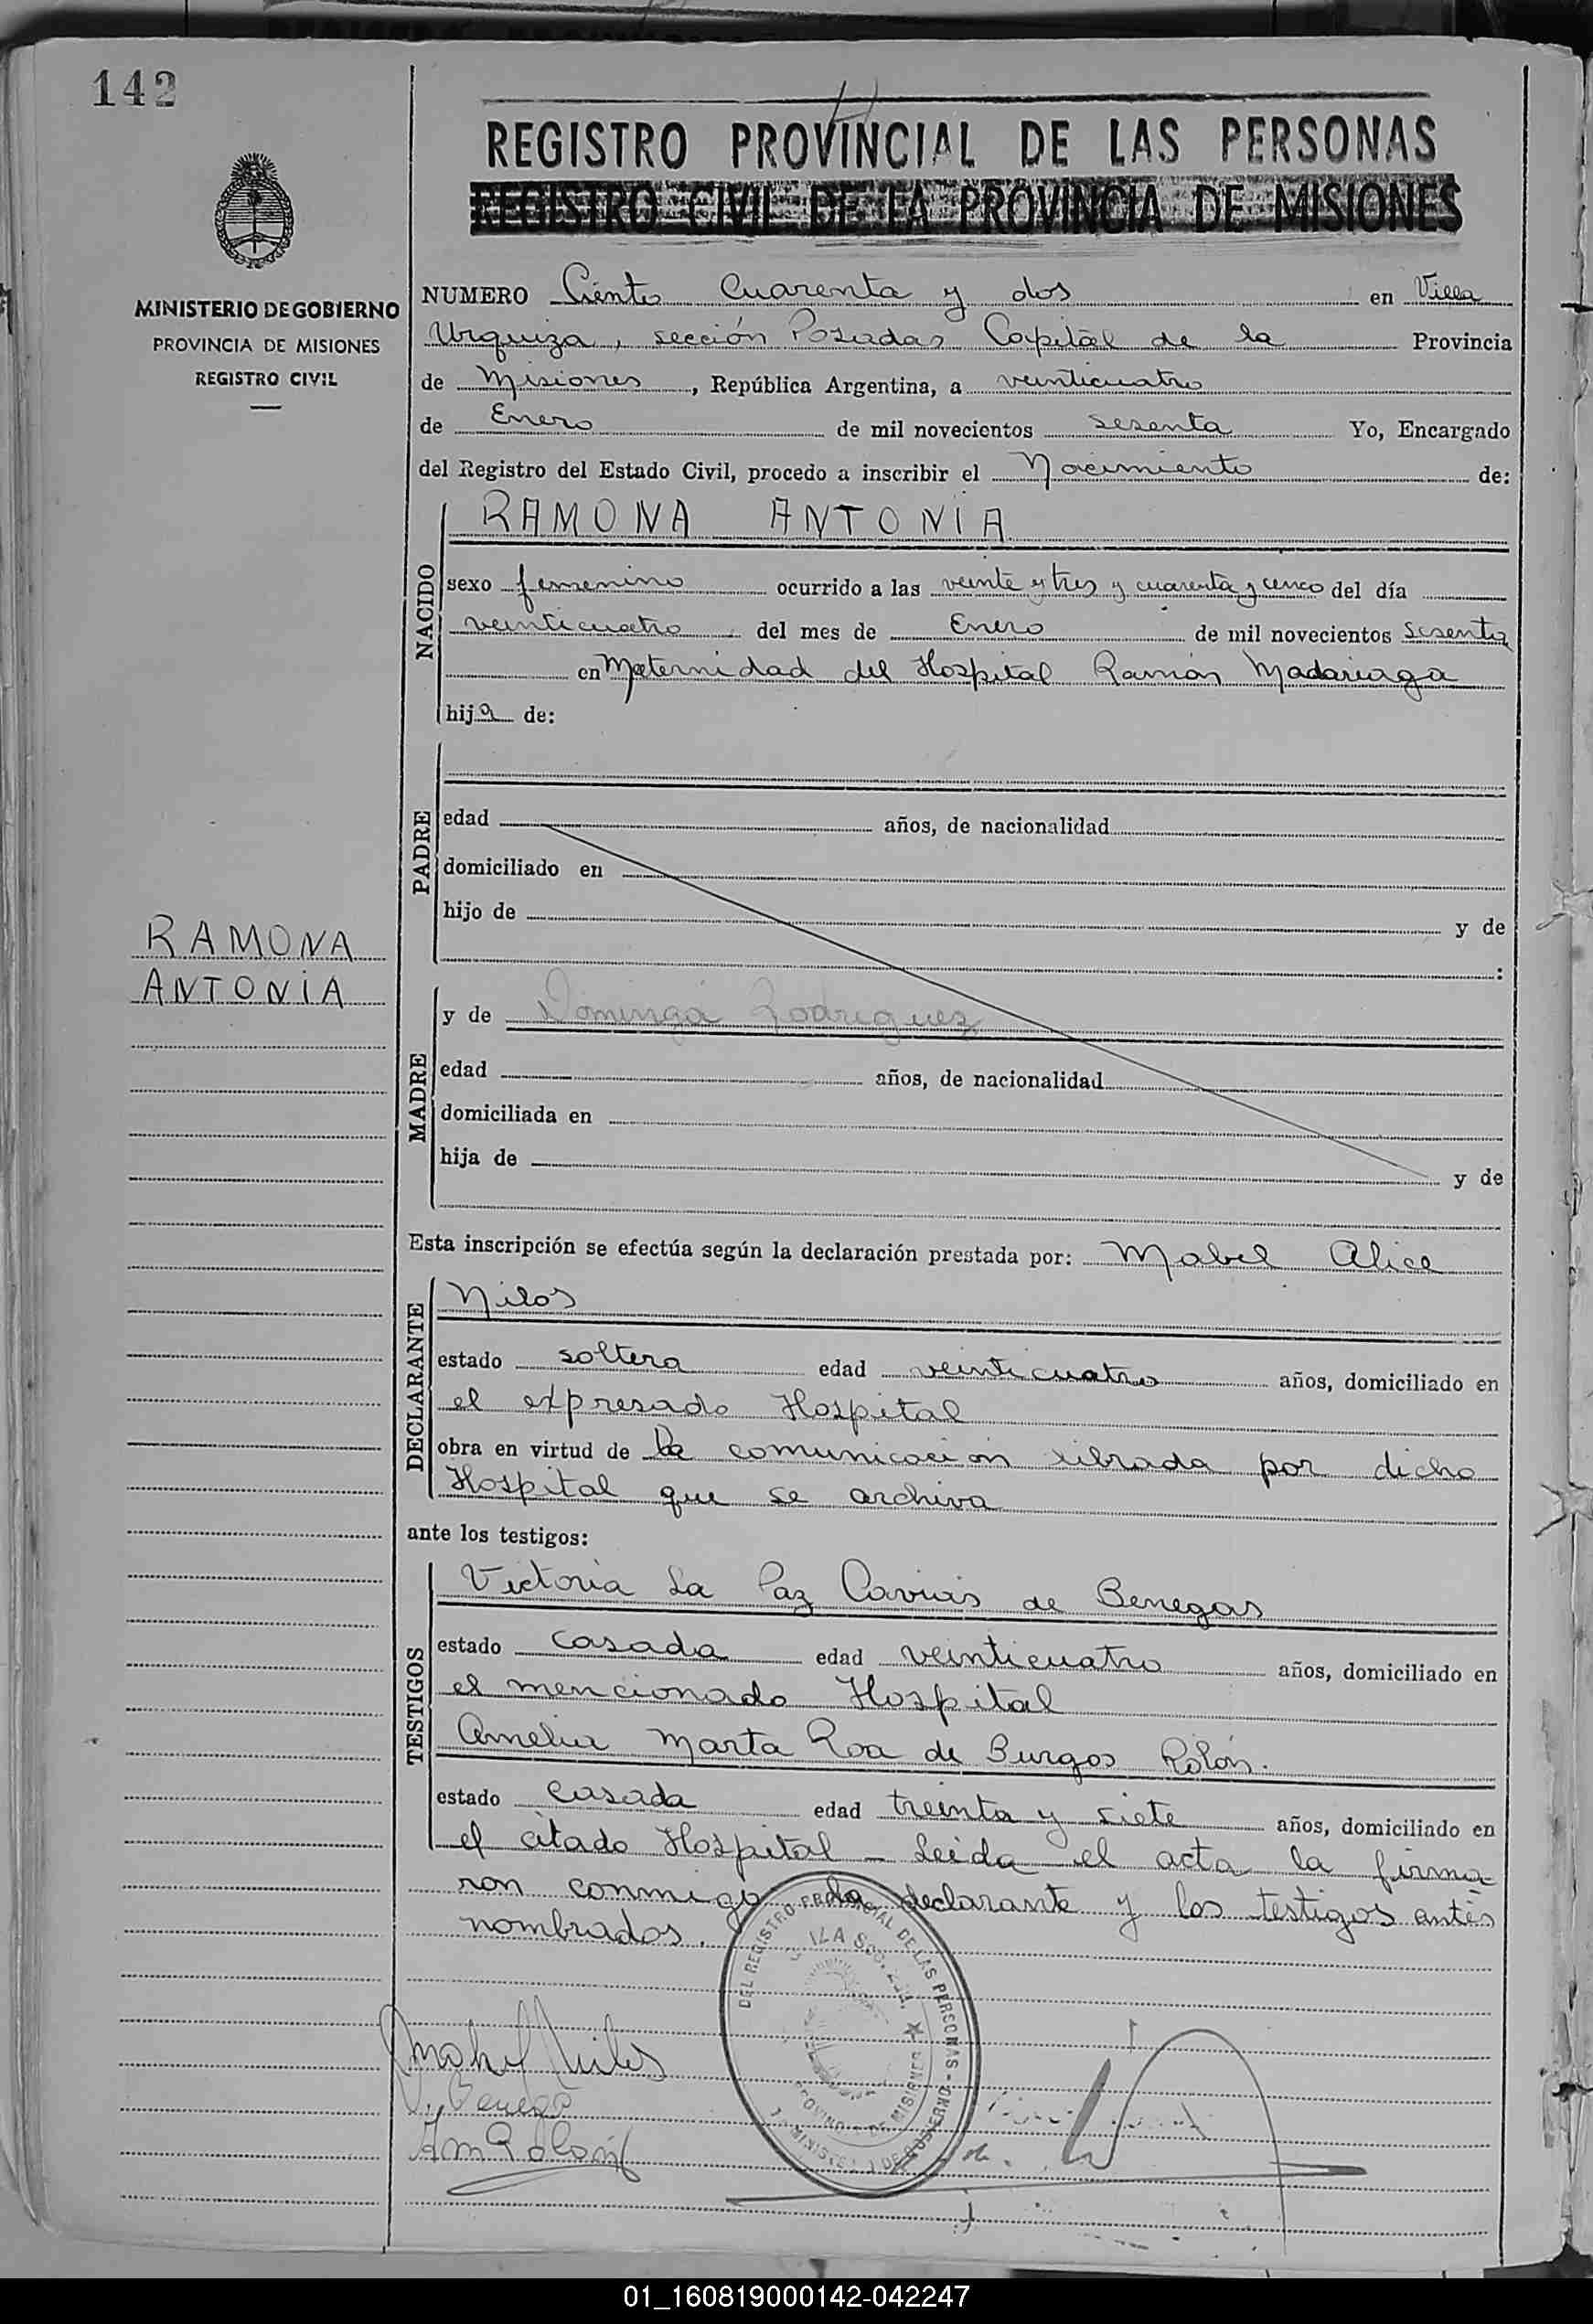 142
REGISTRO PROVINCIAL DE LAS PERSONAS
REGISTRO CIVIL DE LA PROVINCIA DE MISIONES
MINISTERIO DE GOBIERNO
PROVINCIA DE MISIONES
REGISTRO CIVIL
NUMERO Ciento Cuarenta y dos en Villa
Urquiza, sección Posadas Capital de la Provincia
de Misiones, República Argentina, a veinticuatro
de Enero de mil novecientos sesenta Yo, Encargado
del Registro del Estado Civil, procedo a inscribir el Nacimiento de:
NACIDO
RAMONA ANTONIA
sexo femenino ocurrido a las veinte y tres y cuarenta y cinco del día
veinticuatro del mes de Enero de mil novecientos sesenta
en Maternidad del Hospital Ramón Madariaga
hija de:
PADRE
edad años, de nacionalidad
domiciliado en
hijo de y de
:
RAMONA
ANTONIA
MADRE
y de Dominga Rodriguez
edad años, de nacionalidad
domiciliada en
hija de y de
Esta inscripción se efectúa según la declaración prestada por: Mabel Alice
DECLARANTE
Nilos
estado soltera edad veinticuatro años, domiciliado en
el expresado Hospital
obra en virtud de la comunicación librada por dicho
Hospital que se archiva
ante los testigos:
TESTIGOS
Victoria La Paz de Benegas
estado casada edad veinticuatro años, domiciliado en
el mencionado Hospital
Amelia Marta Roa de Burgos Rolón.
estado casada edad treinta y siete años, domiciliado en
el citado Hospital - Leida el acta la firma-
ron conmigo la declarante y los testigos antes
nombrados.
DEL REGISTRO PROVINCIAL DE LAS PERSONAS - MINISTERIO DE GOBIERNO
PROVINCIA DE MISIONES
01_160819000142-042247